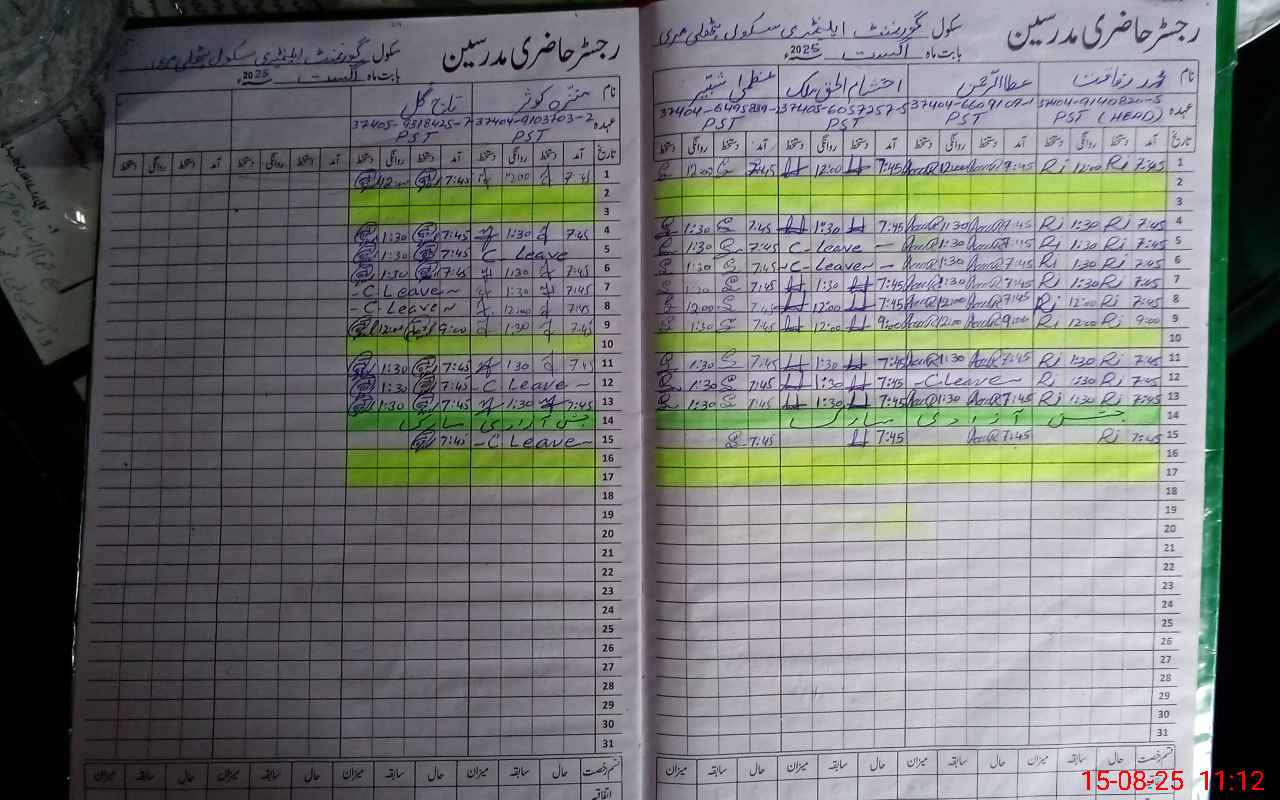 رجسٹر حاضری مدرسین
سکول گورنمنٹ ایلیمنٹری سکول
بابت ماہ اگست 2025ء
نام محمد رفاقت عطاالرحمن احتشام الحق ملک عظمیٰ شبیر
عہدہ 37404-9140820-5 37404-6609109-1 37405-6057257-5
PST (HEAD) PST PST PST
تاریخ آمد دستخط روانگی دستخط آمد دستخط روانگی دستخط آمد دستخط روانگی دستخط آمد دستخط روانگی دستخط
1 7:45 Ri 12:00 Ri 12:00 7:45 12:00 7:45 12:00
2
3
4 7:45 Ri 1:30 Ri 7:45 1:30 7:45 1:30 7:45 1:30
5 7:45 Ri 1:30 Ri 7:45 1:30 C-Leave 7:45 1:30
6 7:45 Ri 1:30 Ri 7:45 1:30 C-Leave 7:45 1:30
7 7:45 Ri 1:30 Ri 7:45 1:30 7:45 1:30 7:45 1:30
8 7:45 Ri 12:00 Ri 7:45 12:00 7:45 12:00 7:45 12:00
9 9:00 Ri 12:00 Ri 9:00 12:00 9:00 12:00 7:45 1:30
10
11 7:45 Ri 1:30 Ri 7:45 1:30 7:45 1:30 7:45 1:30
12 7:45 Ri 1:30 Ri C Leave 7:45 1:30 7:45 1:30
13 7:45 Ri 1:30 Ri 7:45 1:30 7:45 1:30 7:45 1:30
14 جشن آزادی مبارک
15 7:45 Ri 7:45 7:45 7:45
16
17
18
19
20
21
22
23
24
25
26
27
28
29
30
31
قسم رخصت حال سابقہ میزان حال سابقہ میزان حال سابقہ میزان حال سابقہ میزان
اتفاقیہ
رجسٹر حاضری مدرسین
سکول گورنمنٹ ایلیمنٹری سکول
بابت ماہ اگست 2025ء
نام منزہ کوثر تاج گل
عہدہ 37404-9103703-2 37405-9318425-7
PST PST
تاریخ آمد دستخط روانگی دستخط آمد دستخط روانگی دستخط آمد دستخط روانگی دستخط آمد دستخط روانگی دستخط
1 7:45 12:00 7:45 12:00
2
3
4 7:45 1:30 7:45 1:30
5 C Leave 7:45 1:30
6 7:45 1:30 7:45 1:30
7 7:45 1:30 C Leave
8 7:45 12:00 C Leave
9 7:45 1:30 9:00 12:00
10
11 7:45 1:30 7:45 1:30
12 C Leave 7:45 1:30
13 7:45 1:30 7:45 1:30
14 جشن آزادی مبارک
15 C Leave 7:45
16
17
18
19
20
21
22
23
24
25
26
27
28
29
30
31
قسم رخصت حال سابقہ میزان حال سابقہ میزان حال سابقہ میزان حال سابقہ میزان
اتفاقیہ
15-08-25 11:12